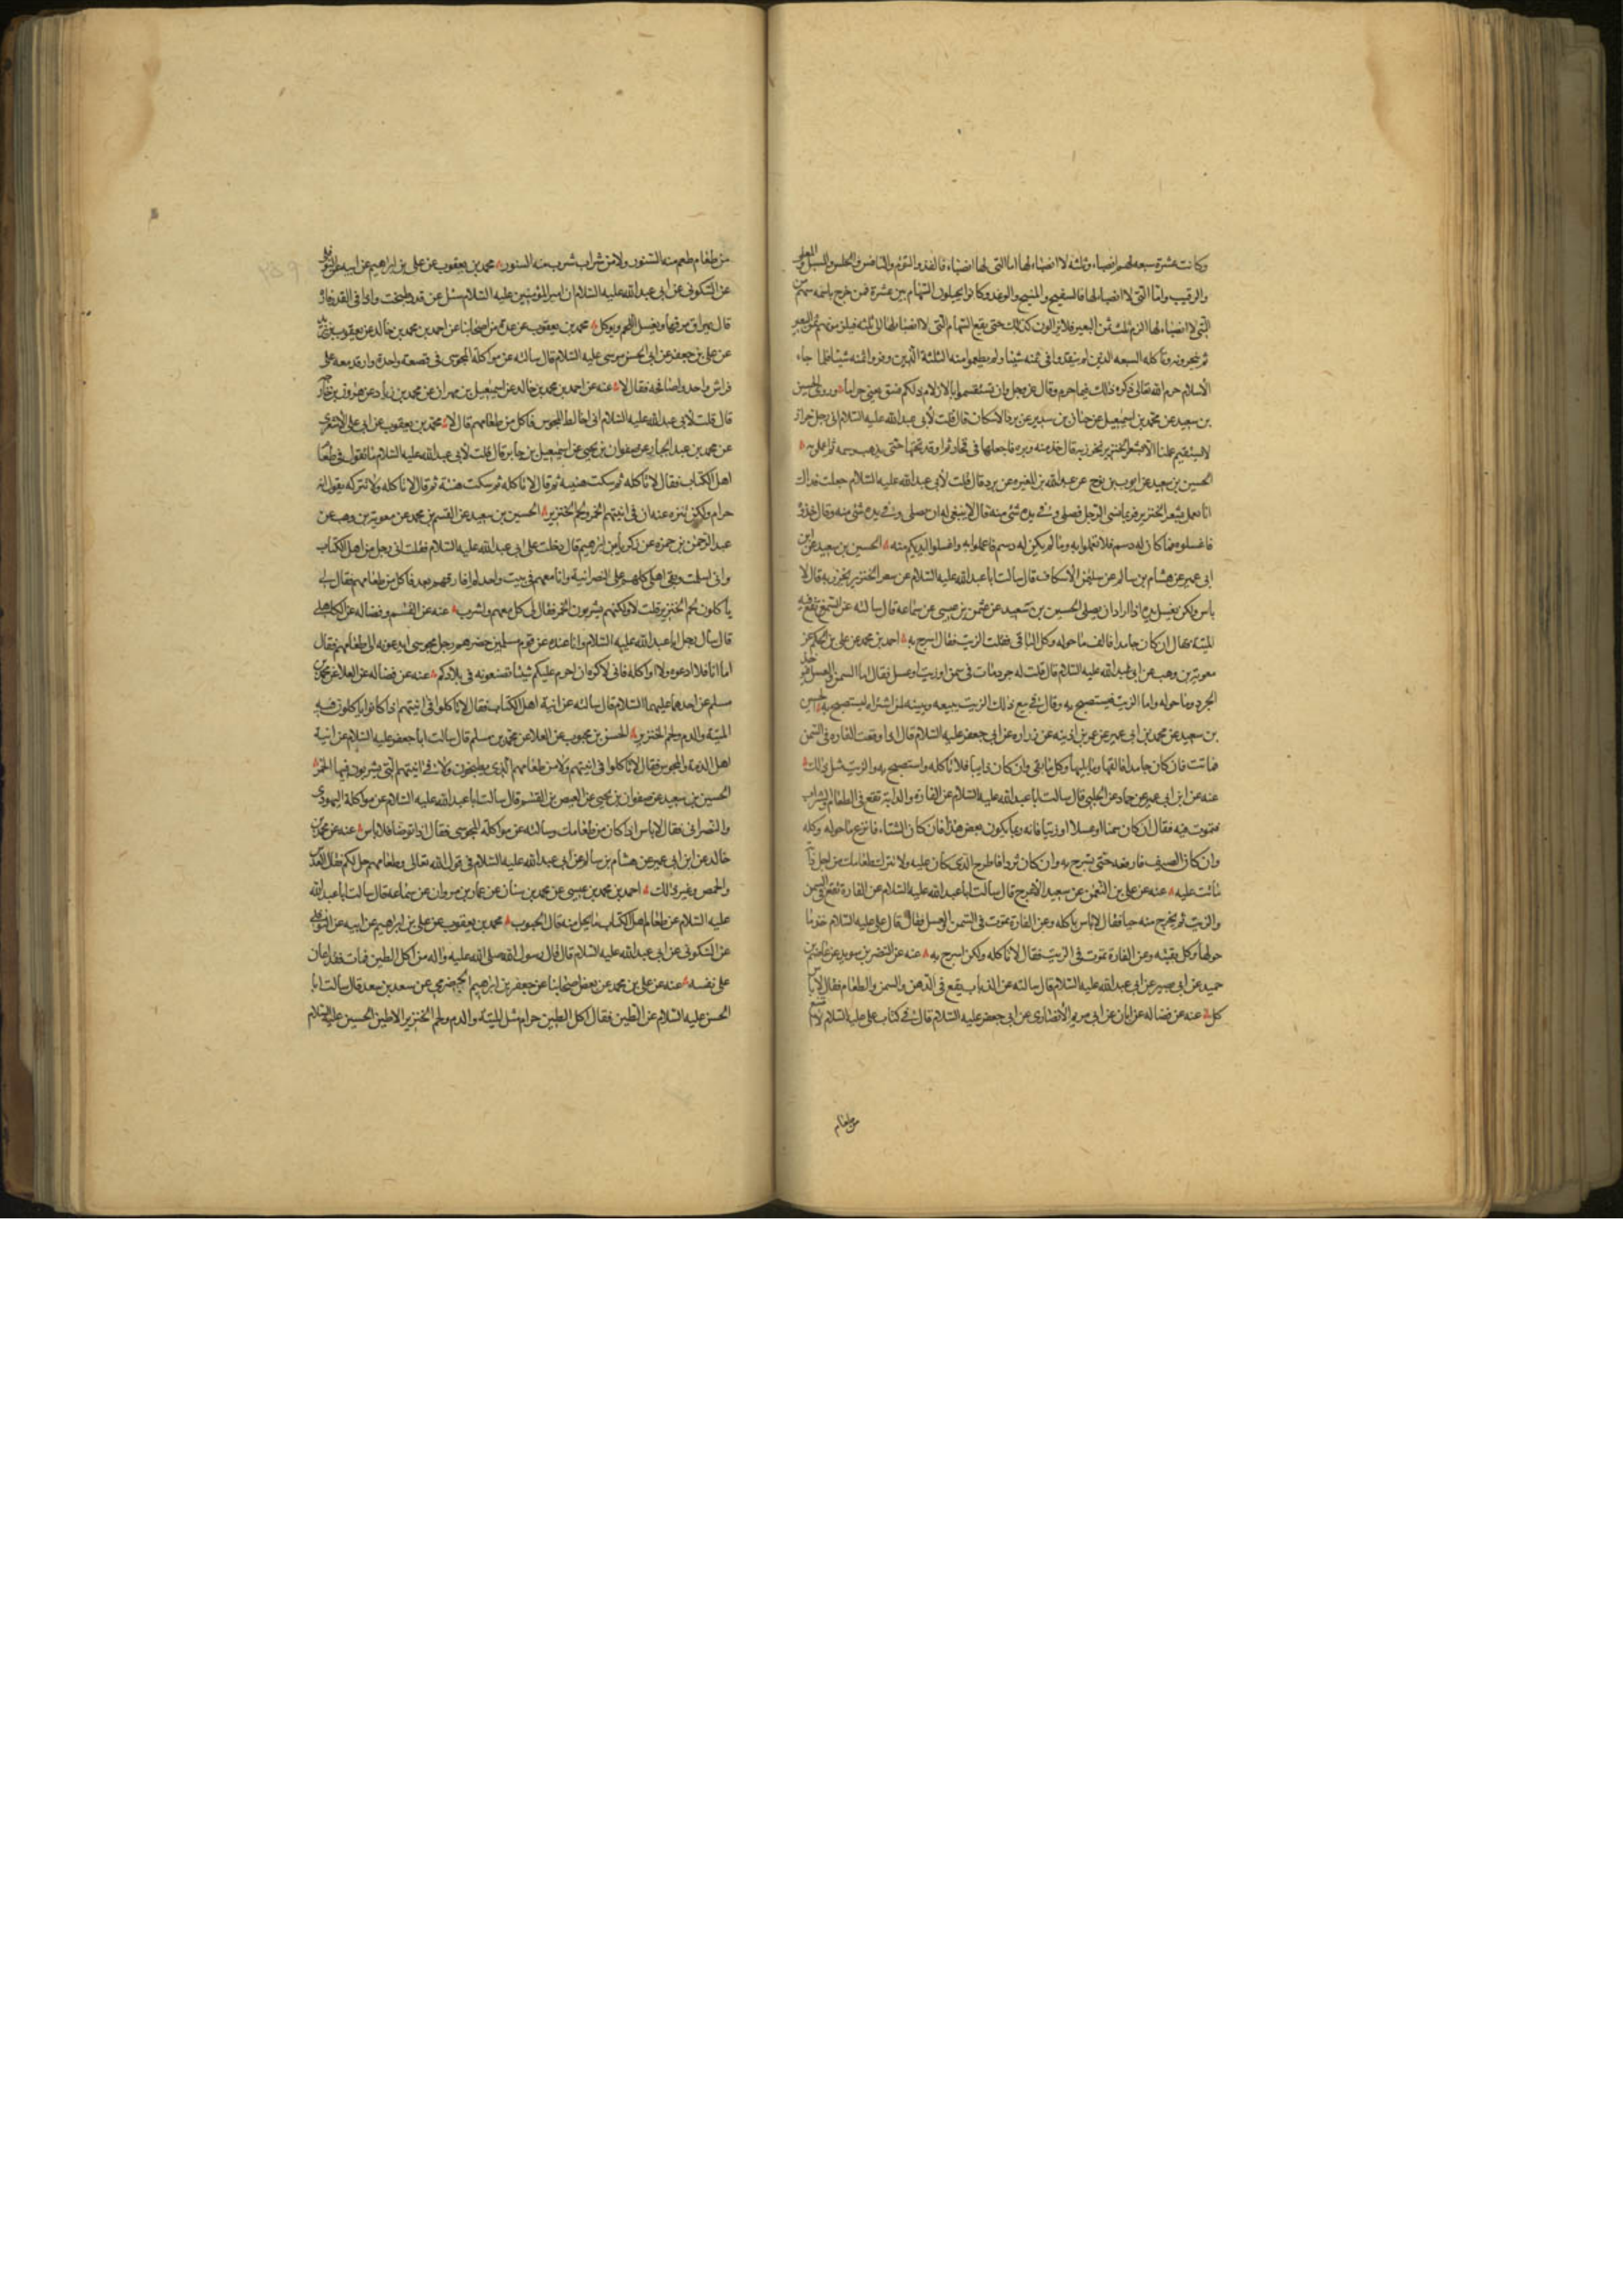 وكانت عشرة سبعه لهم انصباء وثلثه لا انصباء لها اما التى لها انصباء فالفذ والتوءم والنافس والحلس والمسبل والمعلى
والرقيب واما التى لا انصباء لها فالسفيح والمنيح والوغد وكانوا يجيلون السهام بين عشرة فمن خرج باسمه سهم من
التى لا انصباء لها الزم ثلث ثمن البعير فلا يزالون كذلك حتى يقع السهام التى لا انصباء لها الى ثلثه فيلزمونهم ثمن البعير
ثم ينحرونه وتاكله السبعه الذين لم ينقدوا فى ثمنه شيئا ولم يطعموا منه الثلثة الذين وفروا ثمنه شيئا فلما جاء
الاسلام حرم الله تعالى ذكره ذلك فيما حرم وقال عز وجل وان تستقسموا بالازلام ذلكم فسق يعنى حراما وروى الحسين
بن سعيد عن محمد بن اسمعيل عن حنان بن سدير عن برد الاسكاف قال قلت لأبى عبد الله عليه السلام انى رجل خراز
لا يستقيم علمنا الا بشعر الخنزير نخرز به قال خذ منه وبره فاجعلها فى فخار ثم اوقد تحتها حتى يذهب دسمه ثم اعمل به
الحسين بن سعيد عن ايوب بن نوح عن عبد الله بن المغيره عن برد قال قلت لأبى عبد الله عليه السلام جعلت فداك
انا نعمل بشعر الخنزير فربما نسى الرجل فصلى وفى يده شئ منه قال لا ينبغى له ان يصلى وفى يده شئ منه وقال خذوه
فاغسلوه فما كان له دسم فلا تعملوا به وما لم يكن له دسم فاعملوا به واغسلوا ايديكم منه الحسين بن سعيد عن ابن
ابى عمير عن هشام بن سالم عن سليمن الاسكاف قال سالت ابا عبد الله عليه السلام عن شعر الخنزير يخرز به قال لا
باس ولكن يغسل يده اذا اراد ان يصلى الحسين بن سعيد عن عثمن بن عيسى عن سماعه قال سالته عن السمن تقع فيه
الميتة فقال ان كان جامدا فالق ما حوله وكل الباقى فقلت الزيت فقال اسرج به احمد بن محمد عن على بن الحكم عن
معوية بن وهب عن ابى عبد الله عليه السلام قال قلت له جرذ مات فى سمن او زيت او عسل فقال اما السمن والعسل فيؤخذ
الجرذ وما حوله واما الزيت فيستصبح به وقال فى بيع ذلك الزيت يبيعه ويبينه لمن اشتراه ليستصبح به الحسين
بن سعيد عن محمد بن ابى عمير عن عمر بن اذينه عن زراره عن ابى جعفر عليه السلام قال اذا وقعت الفاره فى السمن
فماتت فان كان جامدا فالقها وما يليها وكل ما بقى وان كان ذايبا فلا تاكله واستصبح به والزيت مثل ذلك
عنه عن ابن ابى عمير عن حماد عن الحلبى قال سالت ابا عبد الله عليه السلام عن الفارة والدابة تقع فى الطعام والشراب
فتموت فيه فقال ان كان سمنا او عسلا او زيتا فانه ربما يكون بعض هذا فان كان الشتاء فانزع ما حوله وكله
وان كان الصيف فارفعه حتى يسرج به وان كان ثردا فاطرح الذى كان عليه ولا تترك طعامك من اجل دابة
ماتت عليه عنه عن على بن النعمن عن سعيد الاعرج قال سالت ابا عبد الله عليه السلام عن الفارة تقع فى السمن
والزيت ثم يخرج منه حيا فقال لا باس باكله وعن الفارة تموت فى السمن والعسل فقال قال على عليه السلام خذ ما
حولها وكل بقيته وعن الفارة تموت فى الزيت فقال لا تاكله ولكن اسرج به عنه عن النضر بن سويد عن عاصم بن
حميد عن ابى بصير عن ابى عبد الله عليه السلام قال سالته عن الذباب يقع فى الدهن والسمن والطعام فقال لا باس
كل عنه عن فضاله عن ابان عن ابى مريم الأنصارى عن ابى جعفر عليه السلام قال فى كتاب على عليه السلام لا امتنع
من طعام
من طعام طعم منه السنور ولا من شراب شرب منه السنور محمد بن يعقوب عن على بن ابراهيم عن ابيه عن النوفلى
عن السكونى عن ابى عبد الله عليه السلام ان امير المؤمنين عليه السلام سئل عن قدر طبخت واذا فى القدر فارة
قال يهراق مرقها ويغسل اللحم ويوكل محمد بن يعقوب عن عدة من اصحابنا عن احمد بن محمد بن خالد عن يعقوب بن يزيد
عن على بن جعفر عن ابى الحسن موسى عليه السلام قال سالته عن مواكلة المجوسى فى قصعة واحدة وارقد معه على
فراش واحد واصافحه فقال لا عنه عن احمد بن محمد بن خالد عن اسمعيل بن مهران عن محمد بن زياد عن هرون بن خارجه
قال قلت لأبى عبد الله عليه السلام انى اخالط المجوس فاكل من طعامهم قال لا محمد بن يعقوب عن ابى على الأشعرى
عن محمد بن عبد الجبار عن صفوان بن يحيى عن اسمعيل بن جابر قال قلت لأبى عبد الله عليه السلام ما تقول فى طعام
اهل الكتاب فقال لا تاكله ثم سكت هنيئة ثم قال لا تاكله ثم سكت هنيئة ثم قال لا تاكله ولا تتركه تقول انه
حرام ولكن تتنزه عنه ان فى انيتهم الخمر ولحم الخنزير الحسين بن سعيد عن القسم بن محمد عن معوية بن وهب عن
عبد الرحمن بن حمزه عن زكريا بن ابرهيم قال دخلت على ابى عبد الله عليه السلام فقلت انى رجل من اهل الكتاب
وانى اسلمت وبقى اهلى كلهم على النصرانية وانا معهم فى بيت واحد لم افارقهم بعد فاكل من طعامهم فقال لى
ياكلون لحم الخنزير قلت لا ولكنهم يشربون الخمر فقال لى كل معهم واشرب عنه عن القسم وفضاله عن الكاهلى
قال سال رجل ابا عبد الله عليه السلام وانا عنده عن قوم مسلمين حضرهم رجل مجوسى ايدعونه الى طعامهم فقال
اما انا فلا ادعوه ولا اواكله فانى لاكره ان احرم عليكم شيئا تصنعونه فى بلادكم عنه عن فضاله عن العلا عن محمد بن
مسلم عن احدهما عليهما السلام قال سالته عن انية اهل الكتاب فقال لا تاكلوا فى انيتهم اذا كانوا ياكلون فيه
الميتة والدم ولحم الخنزير الحسن بن محبوب عن العلا عن محمد بن مسلم قال سالت ابا جعفر عليه السلام عن انية
اهل الذمة والمجوس فقال لا تاكلوا فى انيتهم ولا من طعامهم الذى يطبخون ولا فى انيتهم التى يشربون فيها الخمر
الحسين بن سعيد عن صفوان بن يحيى عن العيص بن القسم قال سالت ابا عبد الله عليه السلام عن مواكلة اليهودى
والنصرانى فقال لا باس اذا كان من طعامك وسالته عن مواكلة المجوسى فقال اذا توضا فلا باس عنه عن محمد بن
خالد عن ابن ابى عمير عن هشام بن سالم عن أبى عبد الله عليه السلام فى قول الله تعالى وطعامهم حل لكم فقال العدس
والحمص وغير ذلك احمد بن محمد بن عيسى عن محمد بن سنان عن عمار بن مروان عن سماعه قال سالت ابا عبد الله
عليه السلام عن طعام اهل الكتاب ما يحل منه قال الحبوب محمد بن يعقوب عن على بن ابراهيم عن ابيه عن النوفلى
عن السكونى عن ابى عبد الله عليه السلام قال قال رسول الله صلى الله عليه واله من اكل الطين فمات فقد اعان
على نفسه عنه عن على بن محمد عن بعض اصحابنا عن جعفر بن ابرهيم الحضرمى عن سعد بن سعد قال سالت ابا
الحسن عليه السلام عن الطين فقال اكل الطين حرام مثل الميتة والدم ولحم الخنزير الا طين الحسين عليه السلام